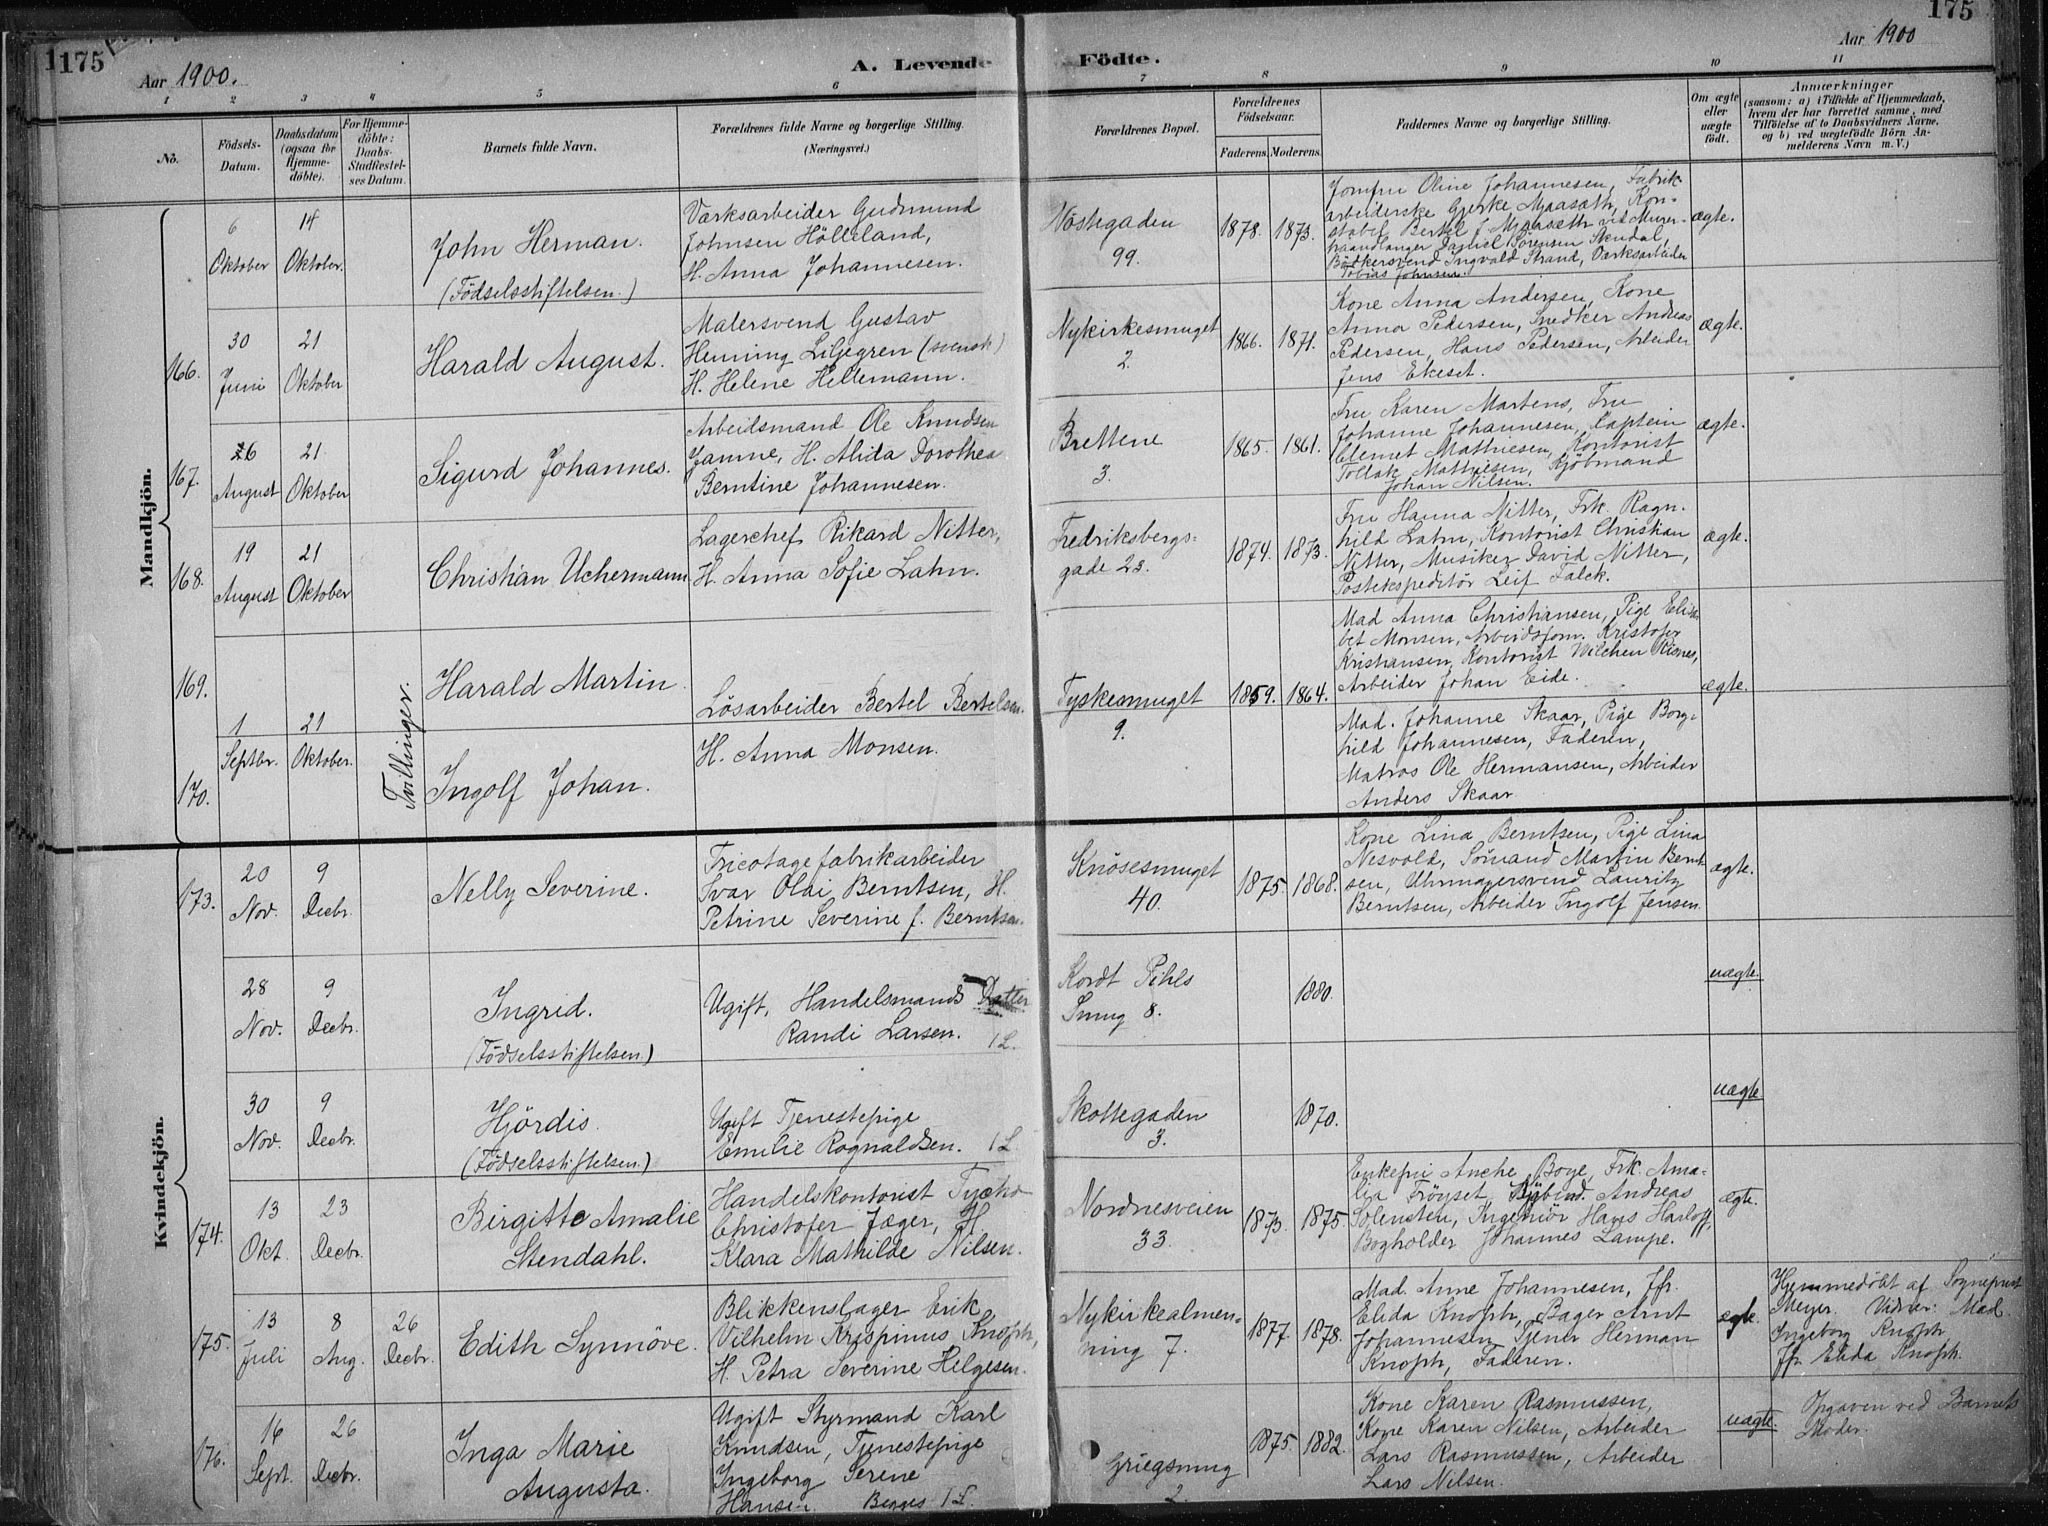 175
Aar 1900.
A. Levende Födte.
Aar 1900
175
1 2 3 4 5 6 7 8 9 10 11
No.
Födsels-
Datum.
Daabsdatum
(ogsaa for
Hjemme-
döbte).
For Hjemme-
döbte:
Daabs-
Stadfæstel-
ses Datum.
Barnets fulde Navn.
Forældrenes fulde Navne og borgerlige Stilling.
(Næringsvei.)
Forældrenes Bopæl.
Forældrenes
Födselsaar.
Faderens.
Moderens.
Faddernes Navne og borgerlige Stilling.
Om ægte
eller
uægte
födt.
Anmærkninger
(saasom: a) i Tilfælde af Hjemmedaab,
hvem der har forrettet samme, med
Tilföielse af to Daabsvidners Navne,
og b) ved uegtefödte Börn An-
melderens Navn m. V.)
Mandkjön.
6
Oktober
14
Oktober.
John Herman.
(Födselsstiftelsen.)
Værksarbeider Gudmund
Johnsen Hölleland,
H. Anna Johannesen.
Nöstegaden
99.
1878. 1873.
Jomfru Oline Johannesen, Fabrik-
arbeiderske Gjerke Mjaasæth, Kon-
stabel Bertel J. Mjaasæth vit Murer-
haandlanger Daniel Sörensen Skudal,
Bödkersvend Ingvald Strand, Værksarbeider
Tobias Johnsen.
ægte.
166.
30
Juni
21
Oktober
Harald August.
Malersvend Gustav
Henning Liljegren (svensk)
H. Helene Hellemann.
Nykirkesmuget
2.
1866. 1871.
Kone Anna Andersen, Kone
Anna Pedersen, Snedker Andreas
Pedersen, Hans Pedersen, Arbeider
Jens Ekeset.
ægte.
167.
26
August
21
Oktober
Sigurd Johannes.
Arbeidsmand Ole Knudsen
Janne, H. Alida Dorothea
Berntine Johannesen.
Brettene
3.
1865. 1861.
Fru Karen Martens, Fru
Johanne Johannesen, Kaptein
Clemet Mathiesen, Kontorist
Tollak Mathiesen, Kjöbmand
Johan Nilsen.
ægte.
168.
19
August
21
Oktober
Christian Uchermann
Lagerchef Rikard Nitter,
H. Anna Sofie Lahn.
Fredriksbergs-
gade 23.
1874. 1873.
Fru Hanna Nitter, Frk. Ragn-
hild Lahn, Kontorist Christian
Nitter, Musiker David Nitter,
Postekspeditör Leif Falck.
ægte.
169.
170.
1
Septbr.
21
Oktober.
Tvillinger.
Harald Martin.
Ingolf Johan.
Lösarbeider Bertel Bertelsen.
H. Anna Monsen.
Tyskesmuget
9.
1859. 1864.
Mad Anna Christiansen, Pige Elisa-
bet Monsen, Arbeidsform. Kristofer
Kristiansen, Kontorist Wilchen Risnes,
Arbeider Johan Eide.
ægte.
Mad. Johanne Skaar, Pige Borg-
hild Johannesen, Faderen,
Matros Ole Hermansen, Arbeider
Anders Skaar.
Kvindekjön.
173.
20
Nov.
9
Decbr.
Nelly Severine.
Tricotagefabrikarbeider
Ivar Olai Berntsen, H.
Petrine Severine f. Berntsen.
Knösesmuget
40.
1875 1868.
Kone Lina Berntsen, Pige Lina
Nesvold, Sömand Martin Bernt-
sen, Uhrmagersvend Lauritz
Berntsen, Arbeider Ingolf Jensen
ægte.
28
Nov.
9
Decbr.
Ingrid.
(Födselsstiftelsen.)
Ugift, Handelsmands Datter
Randi Larsen. 1 L.
Kordt Pihls
Smug 8.
1880.
uægte.
30
Nov.
9
Decbr.
Hjördis.
(Födselsstiftelsen.)
Ugift Tjenestepige
Emilie Rognaldsen. 1 L
Skottegaden
3.
1870.
uægte
174.
13
Okt.
23
Decbr.
Birgitte Amalie
Stendahl.
Handelskontorist Tycho
Christofer Jæger, H.
Klara Mathilde Nilsen.
Nordnesveien
33.
1873. 1875.
Enkefru Anche Boye, Frk. Ama-
lia Fröyset, Kjöbmd. Andreas
Solensten, Ingeniör Hans Harloff,
Bogholder Johannes Lampe.
ægte.
175.
13
Juli
8
Aug.
26
Decbr.
Edith Synnöve.
Blikkenslager Erik
Vilhelm Krispinus Knoph,
H. Petra Severine Helgesen.
Nykirkealmen-
ning 7.
1877. 1878.
Mad. Anne Johannesen, Jfr.
Elida Knoph, Bager Arnt
Johannesen, Tjener Herman
Knoph, Faderen.
ægte.
Hjemmedöbt af Sogneprest
Meyer. Vidner: Mad
Ingeborg Knoph
Jfr. Elida Knoph.
176.
16
Sept.
26
Decbr.
Inga Marie
Augusta.
Ugift Styrmand Karl
Knudsen, Tjenestepige
Ingeborg Serene
Hansen. Begges 1 L.
Griegsmug
2.
1875. 1882.
Kone Karen Rasmussen,
Kone Karen Nilsen, Arbeider
Lars Rasmussen, Arbeider
Lars Nilsen.
uægte.
Opgaven ved Barnets
Moder.